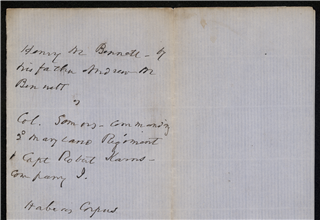 Henry M Bennett - by
his father Andrew M
Bennett
vs
Col. Somers - Commandg
3d Maryland Regiment
& Capt Robert Karns -
Company I.
Habeas Corpus